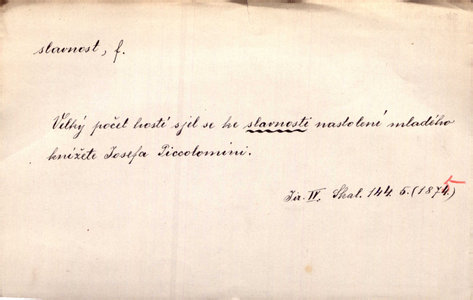 slavnost, f.
Velký počet hostí sjel se ke slavnosti nastolení mladého
knížete Josefa Piccolomini.
Jir. IV. Skal. 144. 5. (1875)